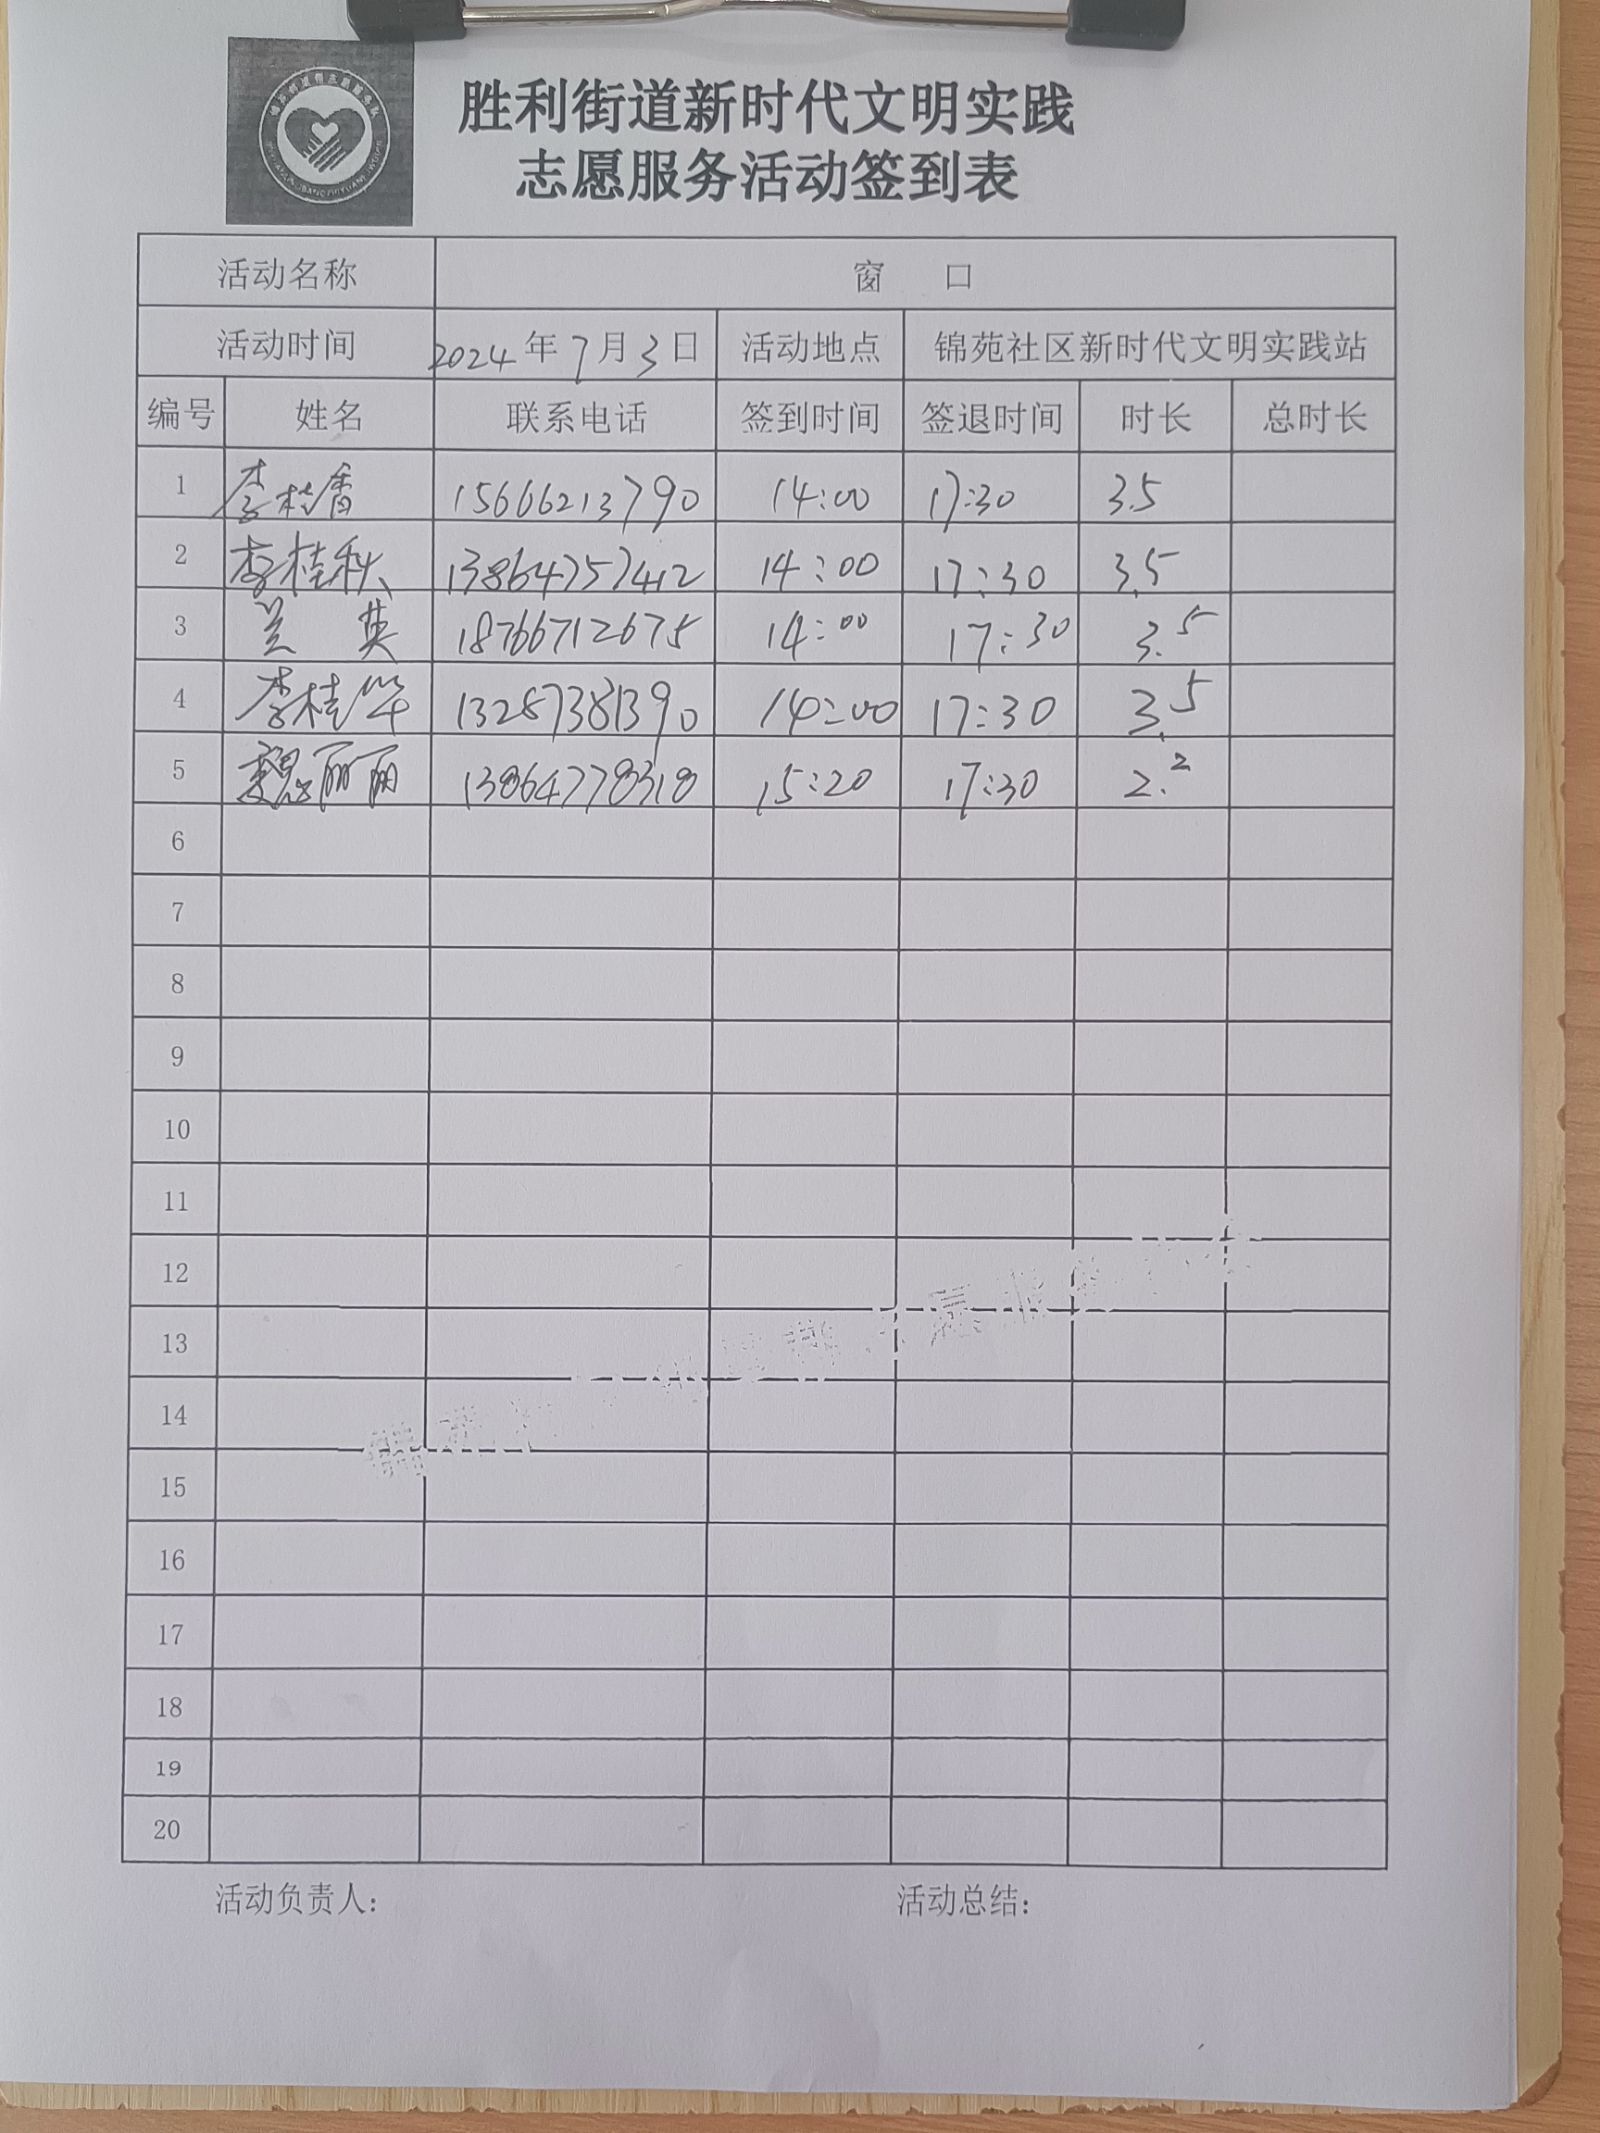 胜利街道新时代文明实践
志愿服务活动签到表
活动名称 窗 口
活动时间 2024年7月3日 活动地点 锦苑社区新时代文明实践站
编号 姓名 联系电话 签到时间 签退时间 时长 总时长
1 李桂香 15666213790 14:00 17:30 3.5
2 李桂秋 13864757412 14:00 17:30 3.5
3 兰英 18766712675 14:00 17:30 3.5
4 李桂华 13287381390 14:00 17:30 3.5
5 魏丽丽 13864778318 15:20 17:30 2.2
6
7
8
9
10
11
12
13
14
15
16
17
18
19
20
活动负责人： 活动总结：